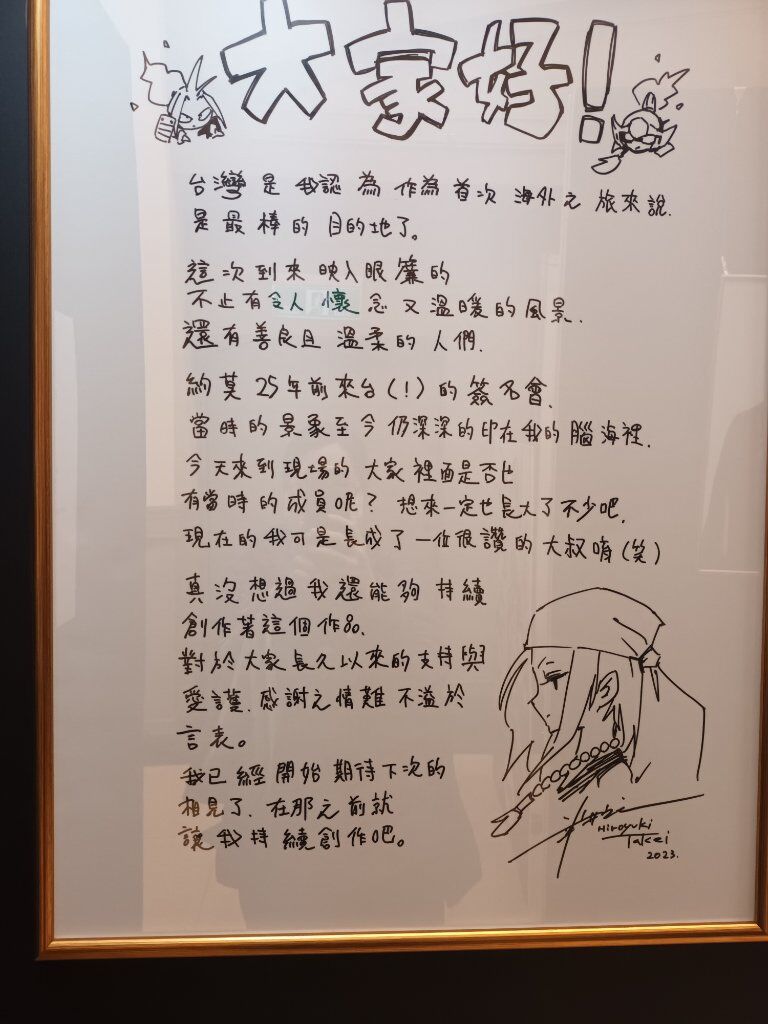 大家好！
台灣是我認為作為首次海外之旅來說.
是最棒的目的地了。
這次到來映入眼簾的
不止有令人懷念又溫暖的風景.
還有善良且溫柔的人們.
約莫25年前來台(！)的簽名會.
當時的景象至今仍深深的印在我的腦海裡.
今天來到現場的大家裡面是否也
有當時的成員呢？想來一定也長大了不少吧.
現在的我可是長成了一位很讚的大叔唷(笑)
真沒想過我還能夠持續
創作著這個作品.
對於大家長久以來的支持與
愛護.感謝之情難不溢於
言表。
我已經開始期待下次的
相見了.在那之前就
讓我持續創作吧。
Hiroyuki
Takei
2023.